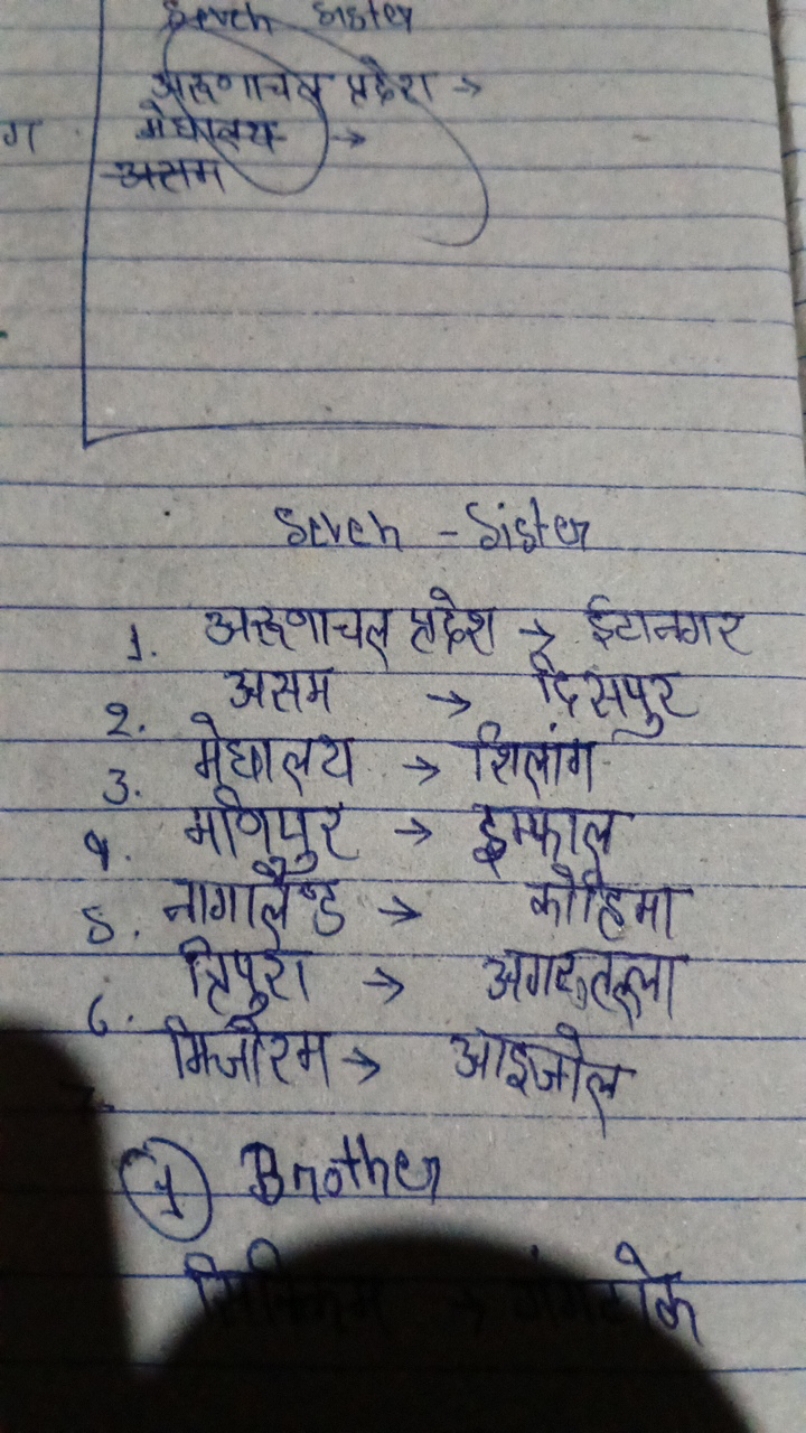 Seven Sister
अरूणाचल प्रदेश →
मेघालय →
असम
ग
Seven - Sister
1. अरूणाचल प्रदेश → ईटानगर
2. असम → दिसपुर
3. मेघालय → शिलांग
4. मणिपुर → इम्फाल
5. नागालैण्ड → कोहिमा
6. त्रिपुरा → अगरतल्ला
7. मिजोरम → आइजोल
1 Brother
सिक्किम → गंगटोक